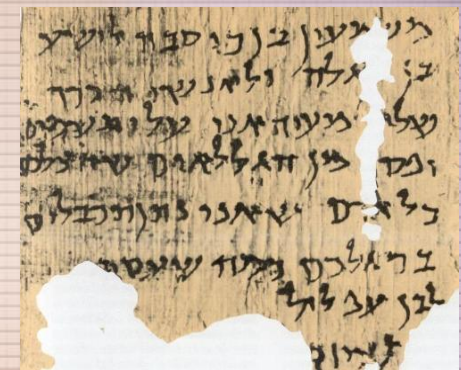 משמעון בן כוסבה לישע
בן גלה ולאנשי הכרך
שלום מעיד אני עלי תשמים
יפס מן הגללאים שהצלכם
כל אדם שאני נתן תכבלים
ברגלכם כמה שעסתי
לבן עפלול